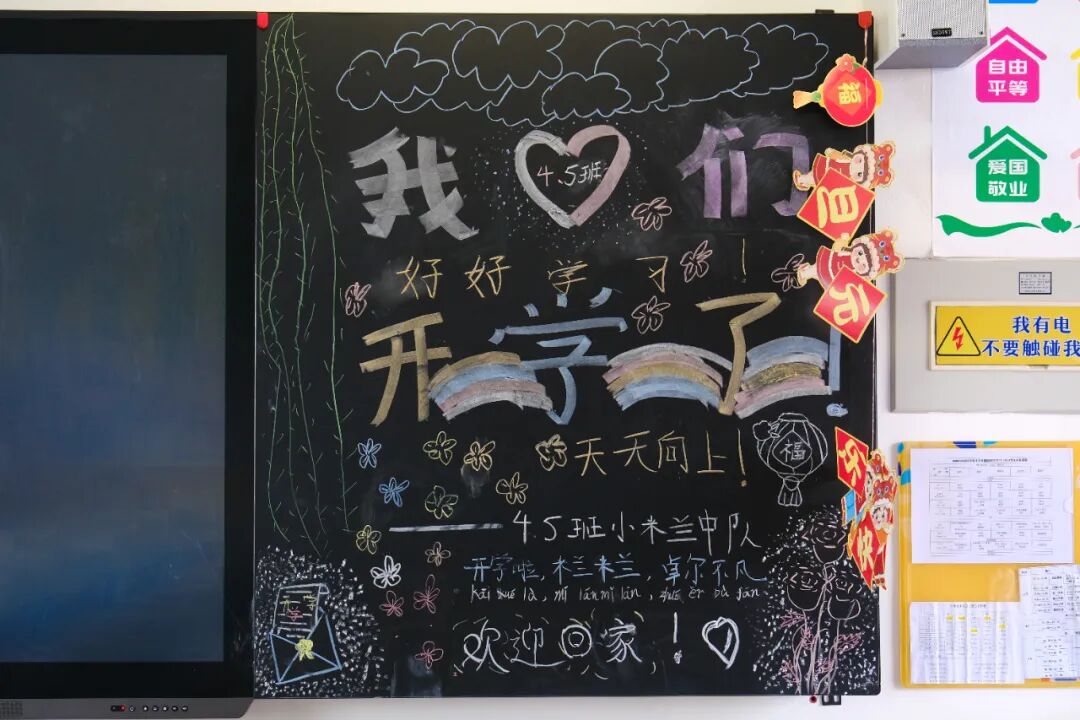 我 4.5班 们
好好学习!
开学了
天天向上!
福
——4.5班小米兰中队
开学啦,米兰米兰,卓尔不凡
kāi xué là, mǐ lán mǐ lán, zhuó ěr bù fán
欢迎回家,!
开学
福
旦
元
乐
快
自由
平等
爱国
敬业
我有电
不要触碰我